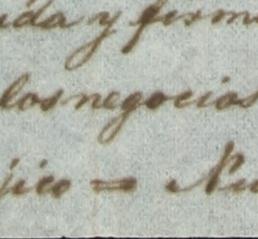 ida y firm
los negocios
jico = Nu